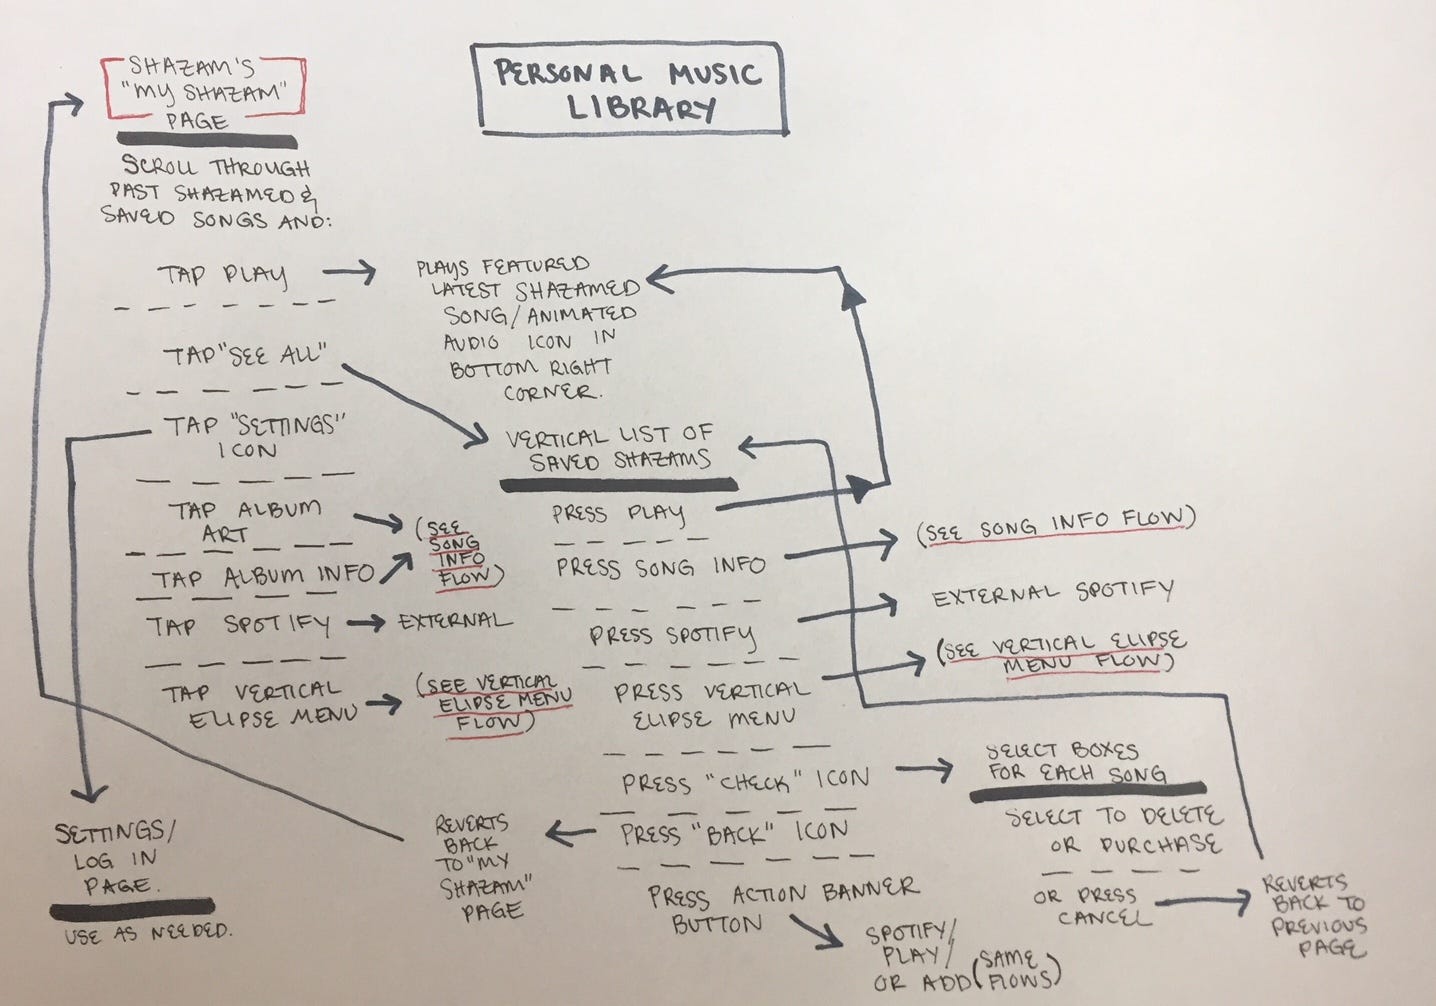 PERSONAL MUSIC
LIBRARY
SHAZAM'S
"MY SHAZAM"
PAGE
SCROLL THROUGH
PAST SHAZAMED &
SAVED SONGS AND:
TAP PLAY
PLAYS FEATURED
LATEST SHAZAMED
SONG/ANIMATED
AUDIO ICON IN
BOTTOM RIGHT
CORNER.
TAP "SEE ALL"
TAP "SETTINGS"
ICON
TAP ALBUM
ART
TAP ALBUM INFO
(SEE
SONG
INFO
FLOW)
TAP SPOTIFY
EXTERNAL
TAP VERTICAL
ELIPSE MENU
(SEE VERTICAL
ELIPSE MENU
FLOW)
SETTINGS/
LOG IN
PAGE.
USE AS NEEDED.
VERTICAL LIST OF
SAVED SHAZAMS
PRESS PLAY
PRESS SONG INFO
(SEE SONG INFO FLOW)
PRESS SPOTIFY
EXTERNAL SPOTIFY
PRESS VERTICAL
ELIPSE MENU
(SEE VERTICAL ELIPSE
MENU FLOW)
PRESS "CHECK" ICON
SELECT BOXES
FOR EACH SONG
SELECT TO DELETE
OR PURCHASE
OR PRESS
CANCEL
REVERTS
BACK TO
PREVIOUS
PAGE
PRESS "BACK" ICON
REVERTS
BACK
TO "MY
SHAZAM"
PAGE
PRESS ACTION BANNER
BUTTON
SPOTIFY/
PLAY/
OR ADD (SAME
FLOWS)